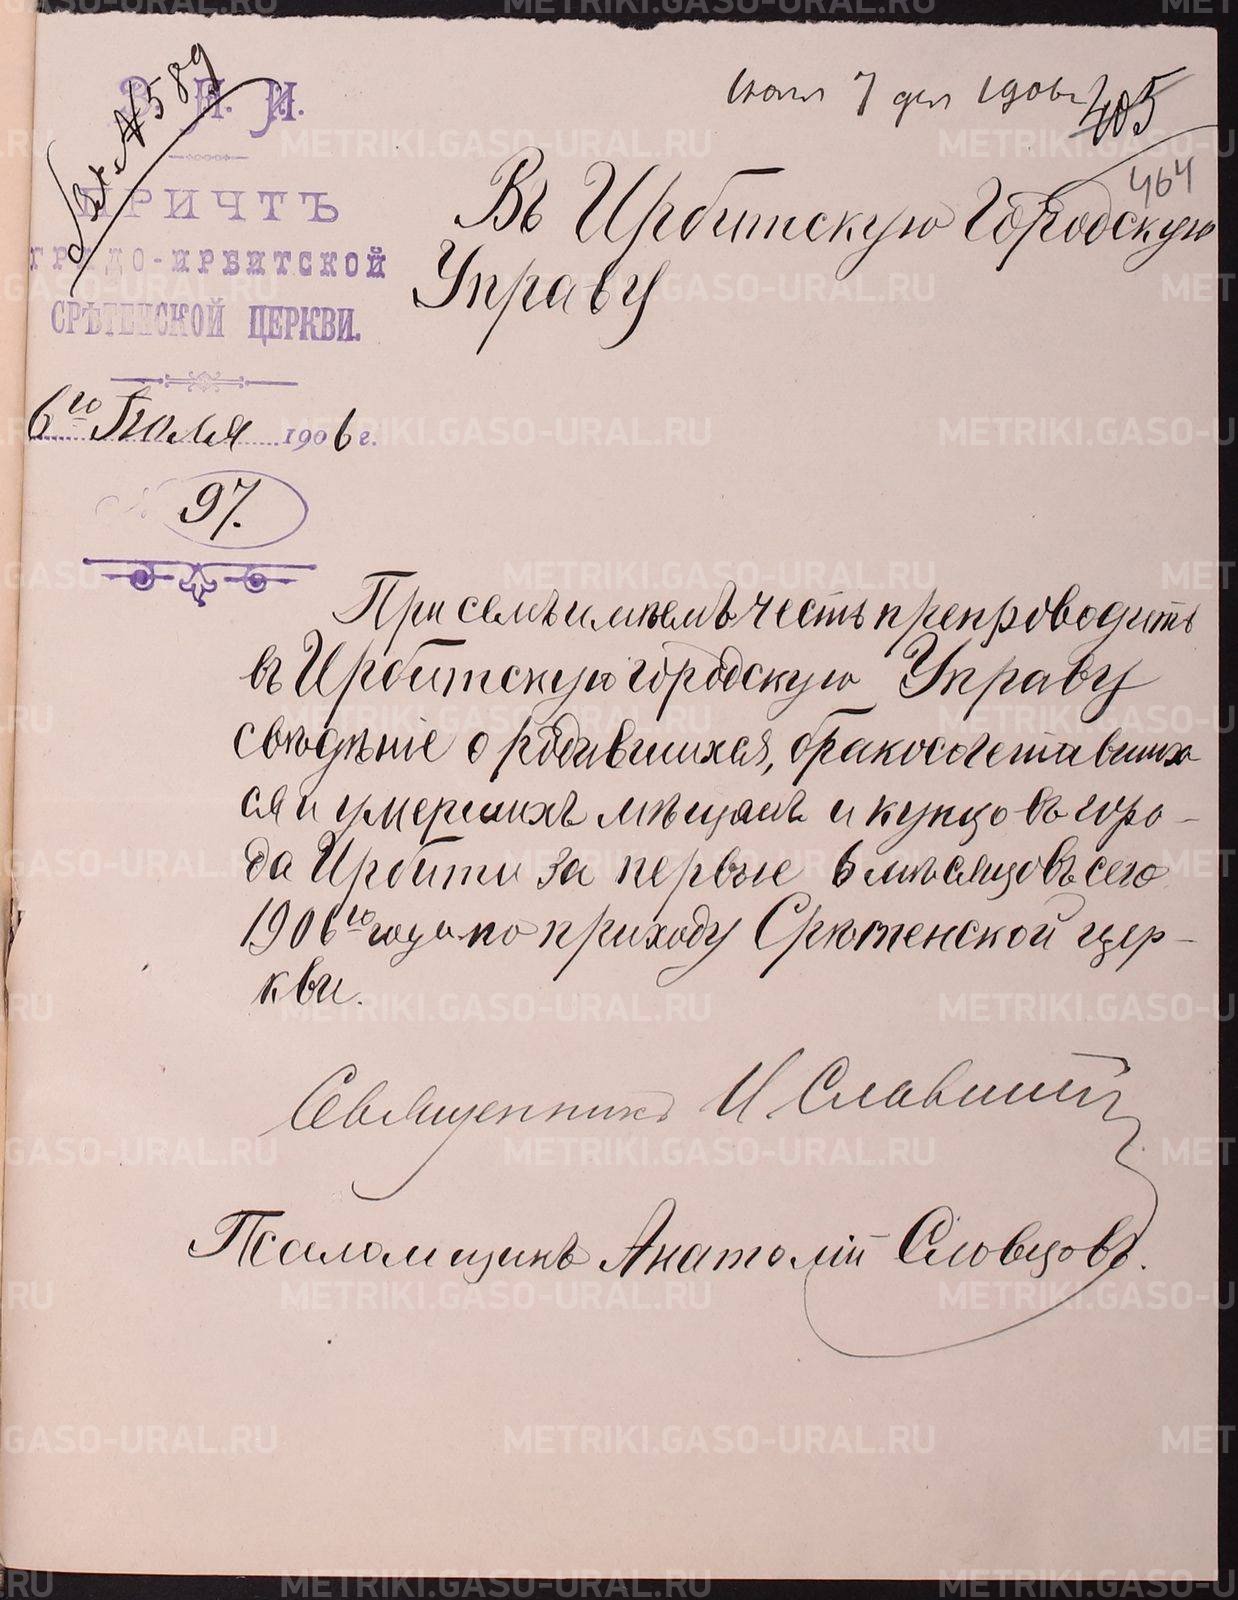 Вх № 589
В. П. И.
ПРИЧТЪ
ГРАДО-ИРБИТСКОЙ
СРѢТЕНСКОЙ ЦЕРКВИ.
6го Іюля 1906 г.
№ 97.
Июля 7 дня 1906 г.
405
464
Въ Ирбитскую Городскую
Управу
При семъ имѣемъ честь препроводить
въ Ирбитскую городскую Управу
свѣдѣніе о родившихся, бракосочетавшихъ
ся и умершихъ мѣщанъ и купцовъ горо-
да Ирбити за первые 6 мѣсяцовъ сего
1906го года по приходу Срѣтенской цер-
кви.
Священникъ И Славнин
Псаломщикъ Анатолій Словцовъ.
METRIKI.GASO-URAL.RU